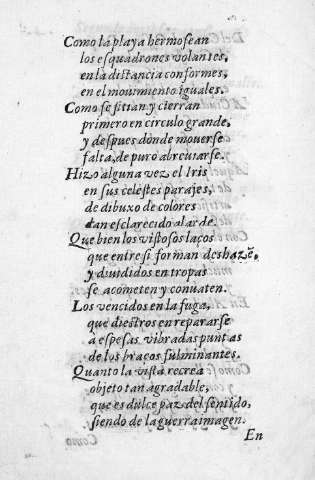 Como la playa hermosean
los esquadrones volantes,
en la distancia conformes,
en el mouimiento iguales.
Como se sitian y cierran
primero en circulo grande,
y despues donde mouerse
falta, de puro abreuiarse.
Hizo alguna vez el Iris
en sus celestes parajes,
de dibuxo de colores
tan esclarecido alarde.
Que bien los vistosos laços
que entre si forman deshazē,
y diuididos en tropas
se acometen y conuaten.
Los vencidos en la fuga,
que diestros en repararse
a espesas vibradas puntas
de los braços fulminantes.
Quanto la vista recrea
objeto tan agradable,
que es dulce paz del sentido,
siendo de la guerra imagen.
En